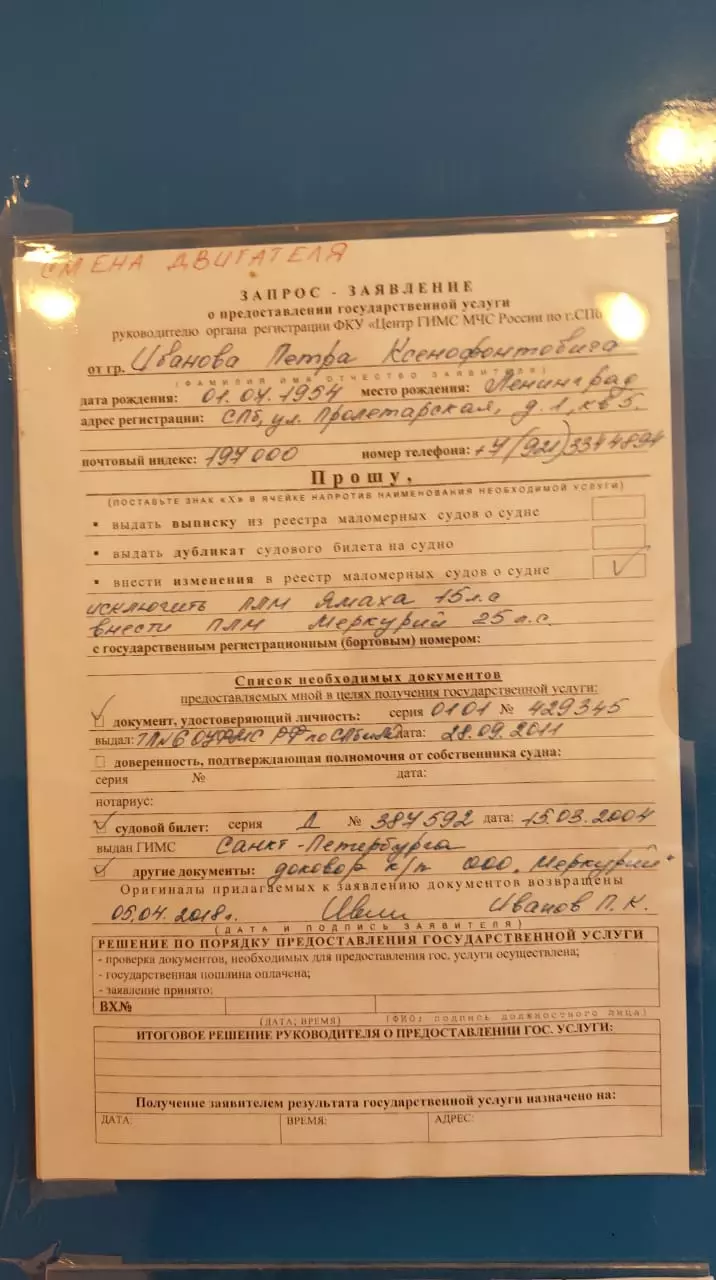 СМЕНА ДВИГАТЕЛЯ
ЗАПРОС - ЗАЯВЛЕНИЕ
о предоставлении государственной услуги
руководителю органа регистрации ФКУ «Центр ГИМС МЧС России по г.СПб
от гр. Иванова Петра Ксенофонтовича
(ФАМИЛИЯ ИМЯ ОТЧЕСТВО ЗАЯВИТЕЛЯ)
дата рождения: 01.04.1954 место рождения: Ленинград
адрес регистрации: СПб, ул. Пролетарская, д.1, кв 5.
почтовый индекс: 197000 номер телефона: +7(921)3344894
Прошу,
(ПОСТАВЬТЕ ЗНАК «Х» В ЯЧЕЙКЕ НАПРОТИВ НАИМЕНОВАНИЯ НЕОБХОДИМОЙ УСЛУГИ)
▪ выдать выписку из реестра маломерных судов о судне
▪ выдать дубликат судового билета на судно
▪ внести изменения в реестр маломерных судов о судне ✓
исключить ПЛМ Ямаха 15 л.с
внести ПЛМ Меркурий 25 л.с.
с государственным регистрационным (бортовым) номером:
Список необходимых документов
предоставляемых мной в целях получения государственной услуги:
документ, удостоверяющий личность: серия 0101 № 429345
выдал: ОУФМС РФ по дата: 28.09.2011
доверенность, подтверждающая полномочия от собственника судна:
серия № дата:
нотариус:
судовой билет: серия Д № 387592 дата: 15.03.2004
выдан ГИМС Санкт-Петербурга
другие документы: договор к/п ООО „Меркурий"
Оригиналы прилагаемых к заявлению документов возвращены
05.04.2018г. Иванов П.К.
(ДАТА И ПОДПИСЬ ЗАЯВИТЕЛЯ)
РЕШЕНИЕ ПО ПОРЯДКУ ПРЕДОСТАВЛЕНИЯ ГОСУДАРСТВЕННОЙ УСЛУГИ
- проверка документов, необходимых для предоставления гос. услуги осуществлена;
- государственная пошлина оплачена;
- заявление принято:
ВХ№
(ДАТА; ВРЕМЯ) (ФИО; подпись должностного лица)
ИТОГОВОЕ РЕШЕНИЕ РУКОВОДИТЕЛЯ О ПРЕДОСТАВЛЕНИИ ГОС. УСЛУГИ:
Получение заявителем результата государственной услуги назначено на:
ДАТА: ВРЕМЯ: АДРЕС: